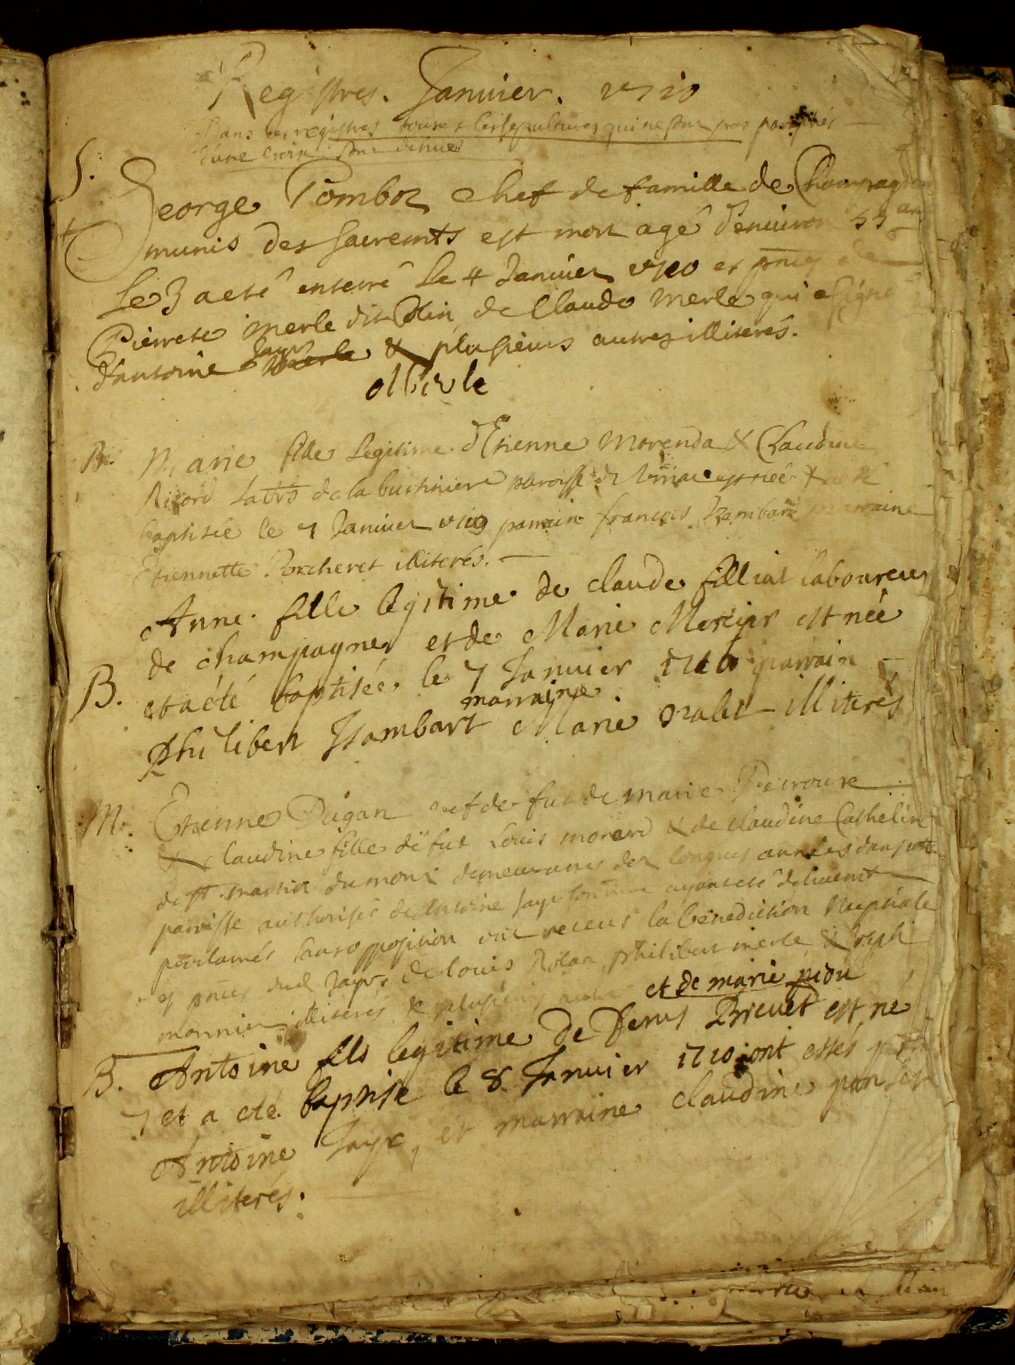 Registres. Janvier. 1710
Dans ces registres toutes les sepultures qui ne sont pas
d'une croix sont
S. George Tomboz chef de famille de Champagne
munis des sacremts est mort agé d'environ 55 an
Le 3 a eté enterré le 4 Janvier 1710 es pnces de
Pierrete merle dit Colin, de Claude merle qui a signé
d'antoine Jayr & plusieurs autres illiterés.
M. Marie fille Legitime d'Etienne morenda & Claudine
Ricord Labrs de la bushiniere paroisse de née & a eté
baptisée le 7 Janvier 1710 parrain francois Jsambard marraine
Etiennette Porcheret illiterés.
Anne fille legitime de claude fillial laboureur
de champagne et de Marie Mercier est née
B. et a eté baptisée le 7 Janvier 1710 parrain
philibert Jsambart marraine Marie illiterés
M. Etienne Dagan et de fut de marie
& claudine fille de fut Louis morard & de claudine Cathelin
de st. martin du mont demeurants dez longues années dans cette
paroisse authorisée de Antoine Jayr son ayants eté duement
proclamés sans opposition ont receus la benediction Nuptiale
es pnces dud Jayr de louis Rolan, philibert merle & Joseph
monnier illiterés & plusieurs autres
et de marie piou
B. Antoine fils legitime de Denis Brevet est né
7 et a eté baptisé le 8 Janvier 1710 ont estés
Antoine Jayr, et marraine claudine
illiterés.